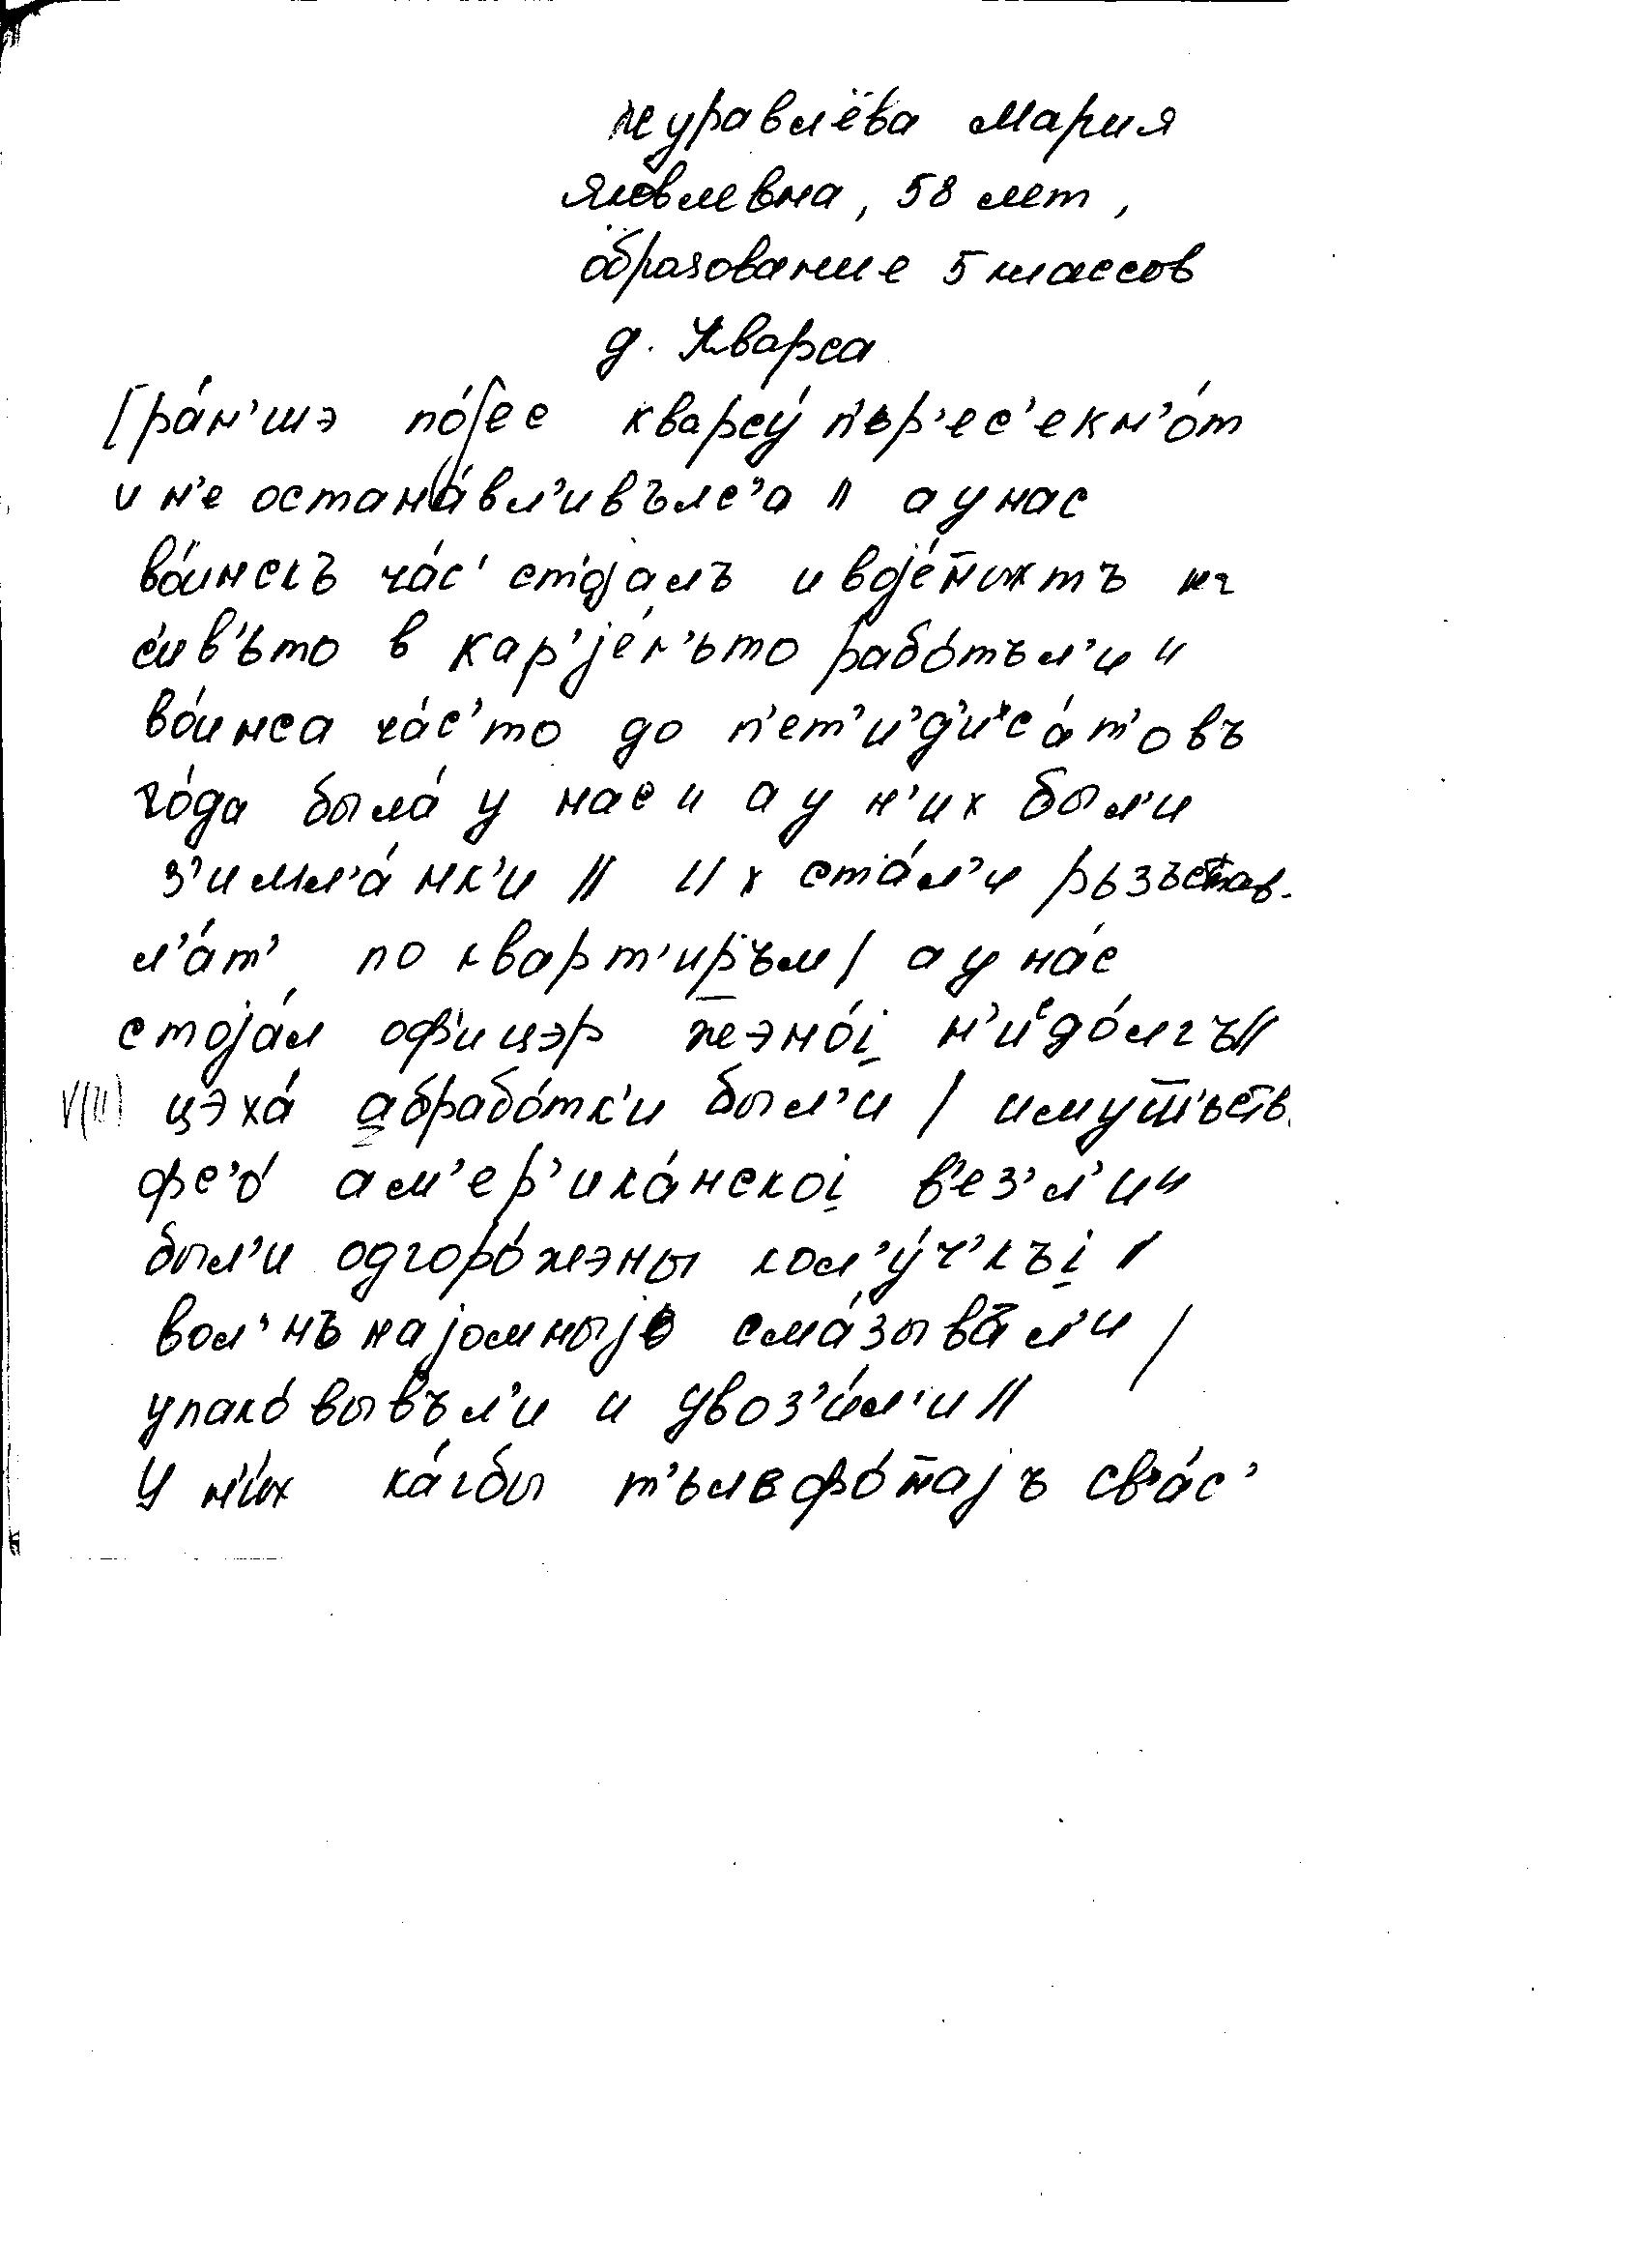 Журавлёва Мария
Яковлевна, 58 лет,
образование 5 классов
д. Кварса
[ра́н'шэ по́јес кварсу́ п'ьр'ес'екн'о́т
и н'е остана́вл'ивълс'а // а у нас
во́инскъ ча́с' стоjалъ и воjе́н̄ыхтъ
в кар'jе́р'ьто рабо́тъл'и //
во́инса ча́с'то до п'ет'и'д'ис'а́т'овъ
го́да была́ у нас // а у н'их был'и
з'имл'а́нк'и // Их ста́л'и ръзъстав-
л'а́т' по кварт'иръм / а у на́с
стоjа́л оф'ицэр жэно́i̯ н'иедо́лгъ //
цэха́ абрабо́тк'и был'и / имуш̄'ьств
фс'о́ ам'ер'ика́нскоi̯ в'ез'л'и //
был'и одгоро́жэны кол'у́ч'къi̯ //
вол'нънаjомныjь сма́зывъл'и /
упако́вывъл'и и увоз'и́л'и //
У н'и́х ка́гбы т'ьлефо́н̄аjъ св'а́с'